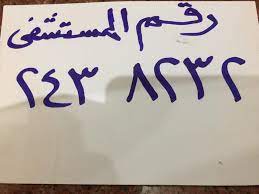 رقم المستشفى
٢٤٣ ٨٢٣٢